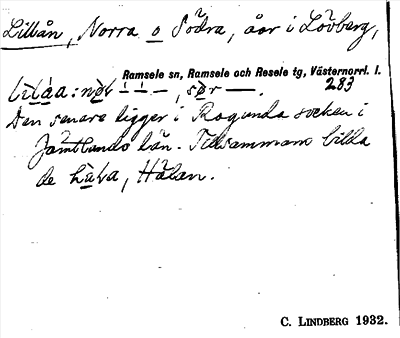 Lillån, Norra o Södra, åar i Lövberg,
Ramsele sn, Ramsele och Resele tg, Västernorrl. l.
283
Den senare ligger i Ragunda socken i
Jämtlands län. Tillsammans bilda
de hu̇ba, Håban.
C. LINDBERG 1932.